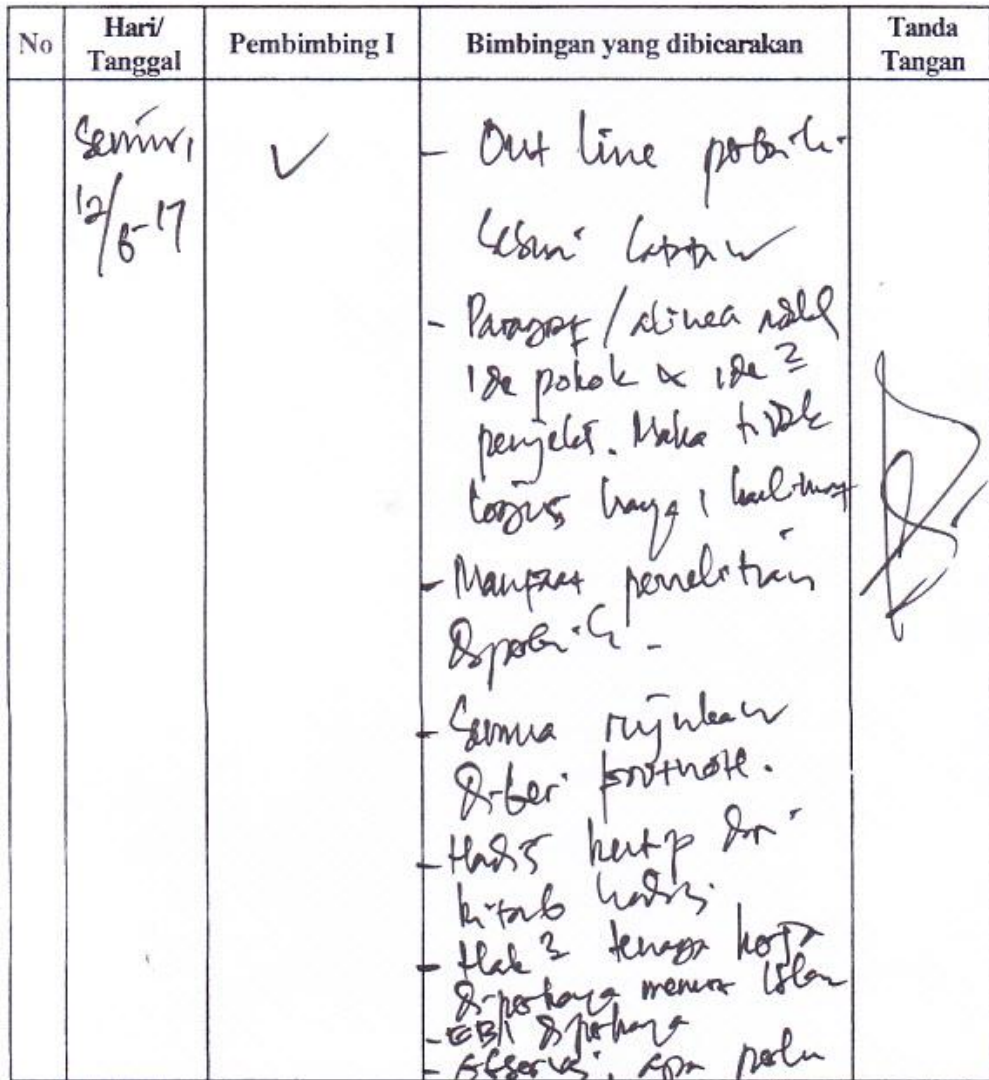 No
Hari/
Tanggal
Pembimbing I
Bimbingan yang dibicarakan
Tanda
Tangan
Senin,
12/6-17
- Out line perbaiki
sesuai
- Paragraf / alinea
ide pokok & ide2
penjelas. Maka tidak
hanya 1 kalimat
- Manfaat penelitian
diperbaiki -
- Semua rujukan
diberi footnote.
- Hadis kutip dari
kitab hadis
- Hak2 tenaga kerja
menurut Islam
- EBI
apa perlu